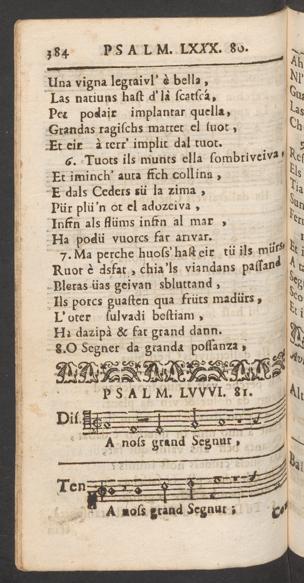 384 PSALM. LXXX. 80.
Una vigna legraivl' è bella,
Las natiuns hast d'là scatscà,
Per podair implantar quella,
Grandas ragischs mattet el suot,
Et eir à terr' implit dal tuot.
6. Tuots ils munts ella sombriveiva,
Et iminch' auta sch collina,
E dals Ceders sü la zima,
Pür plü'n ot el adozeiva,
Insin als flüms insin al mar,
Ha podü vuorcs far arrivar.
7. Ma perche huoss' hast eir tü ils mürs
Ruot è dsfat, chia'ls viandans passand
Bleras üas geivan sbluttand,
Ils porcs guasten qua früts madürs,
L'oter sulvadi bestiam,
Ha dazipà & fat grand dann.
8. O Segner da granda possanza,
PSALM. LVVVI. 81.
Dis.
A noss grand Segnur,
Ten
A noss grand Segnur;